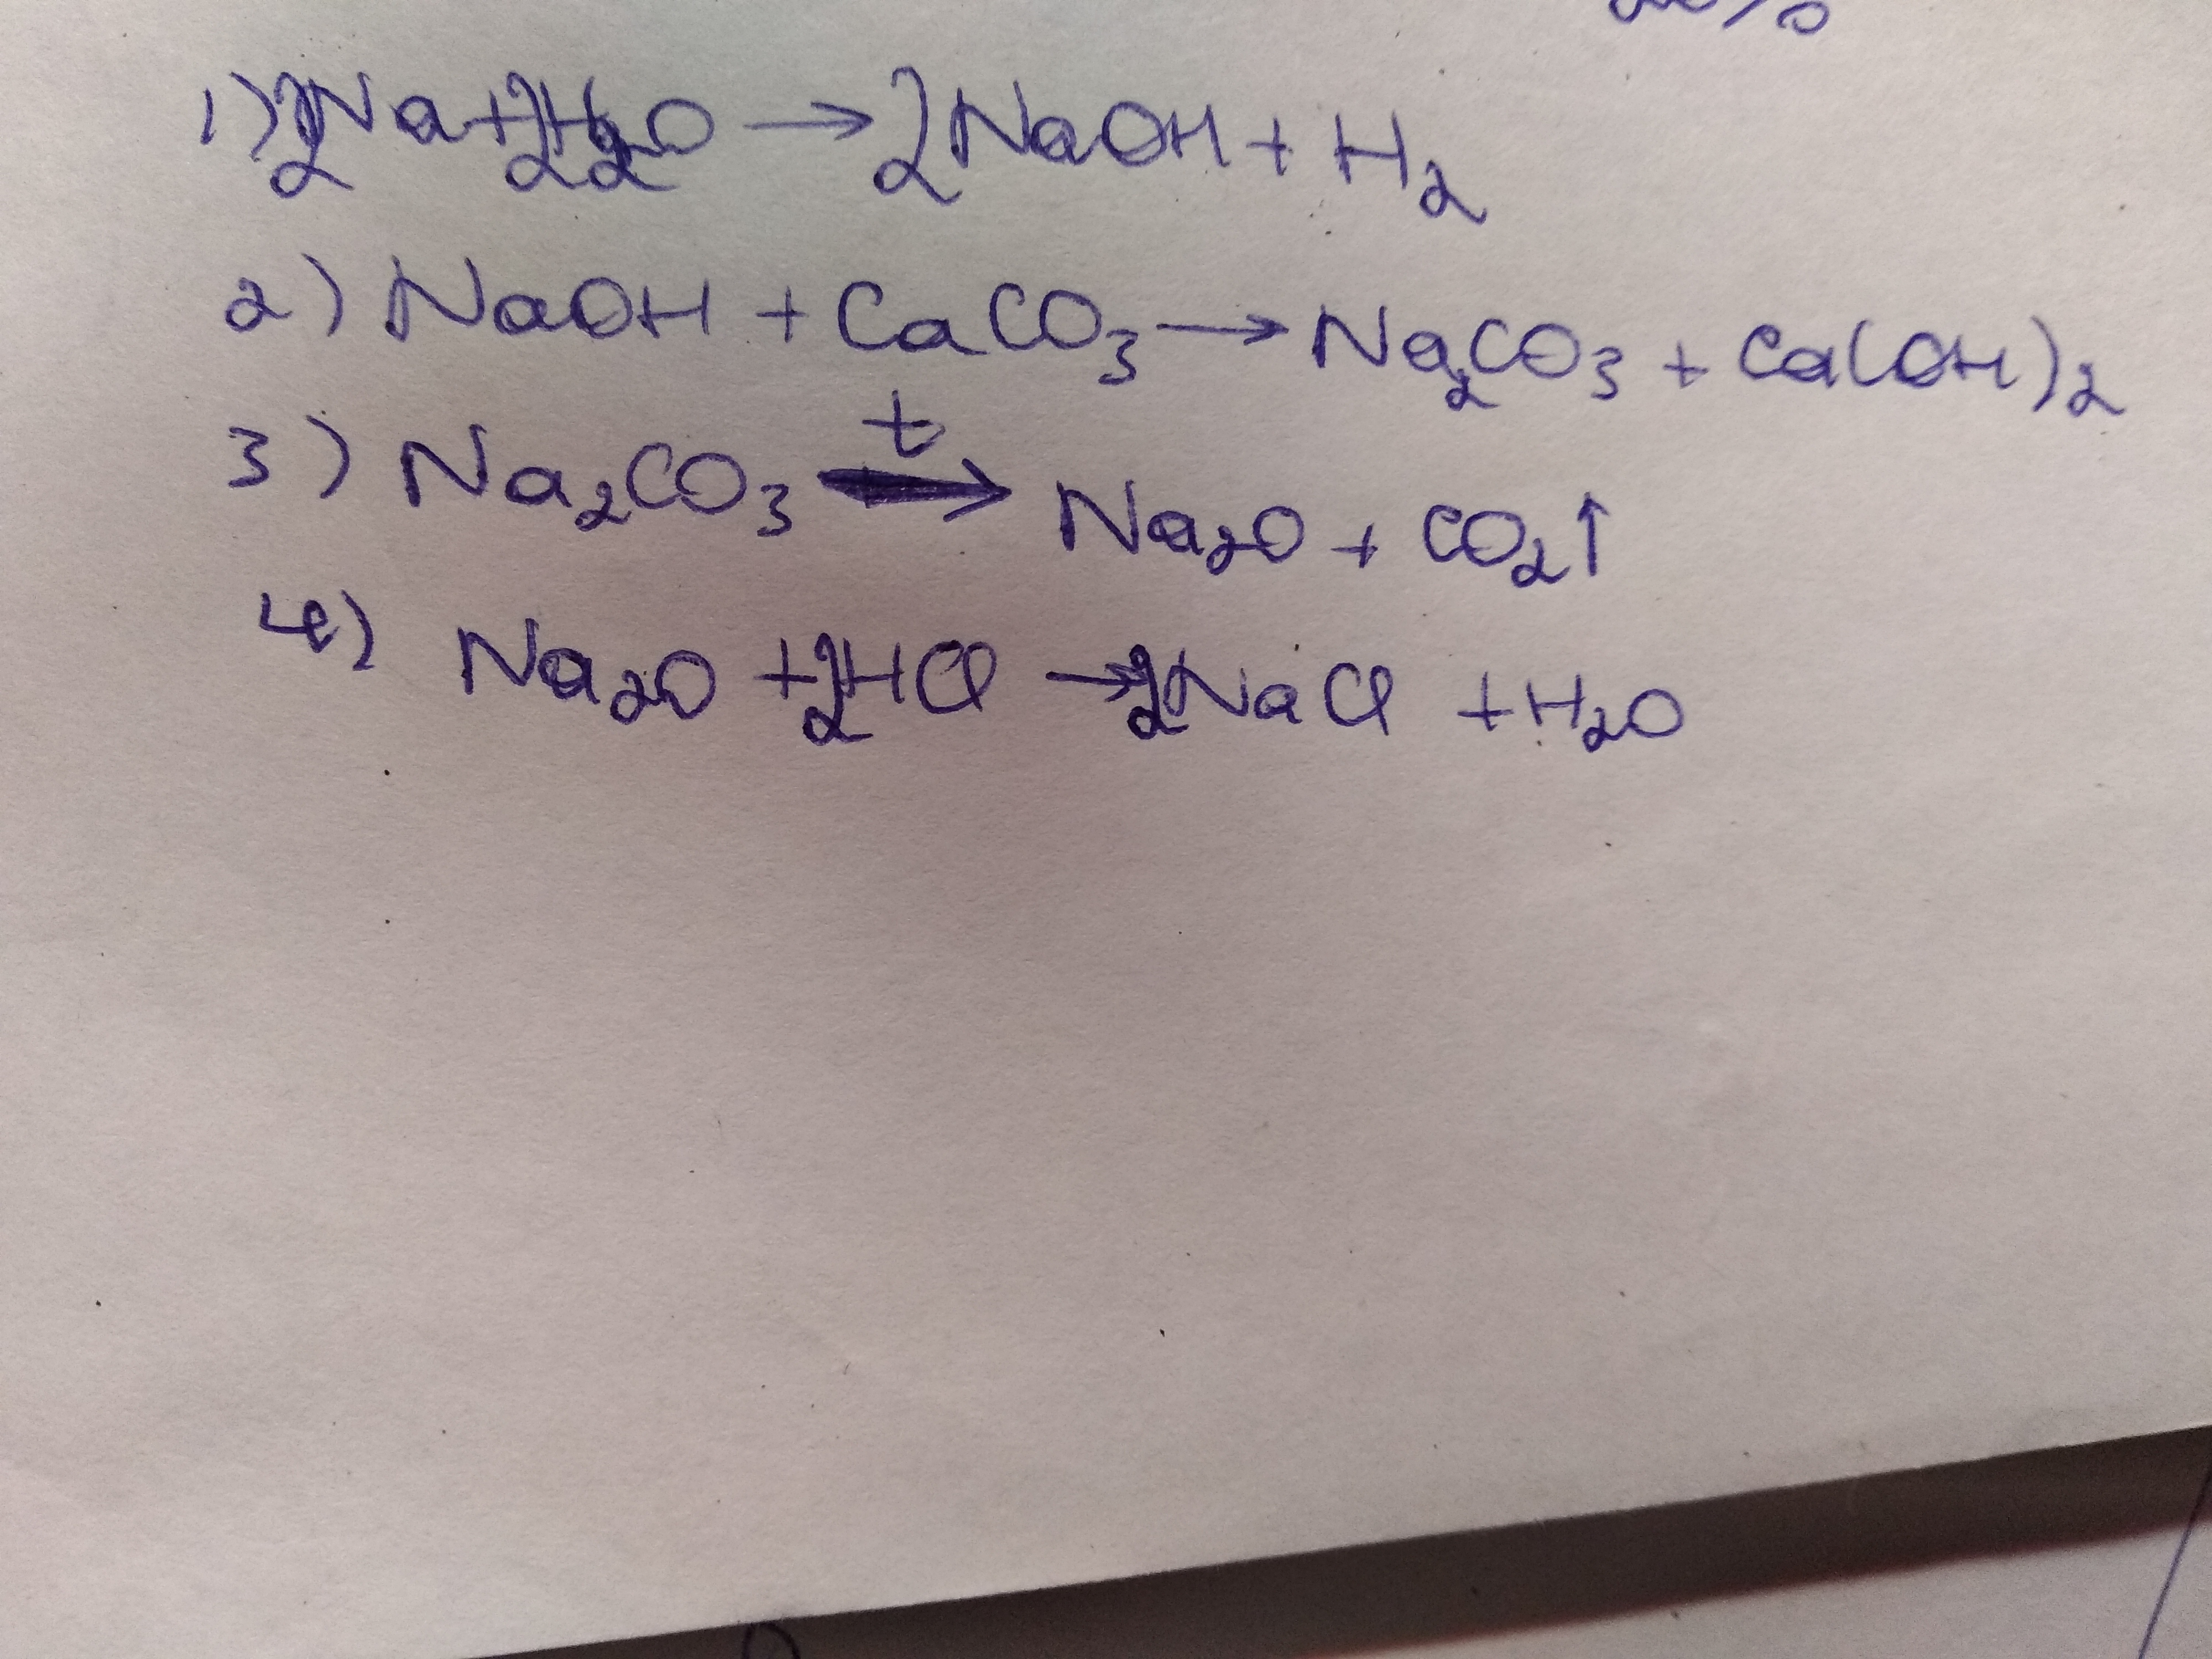 1) 2Na + 2H₂O → 2NaOH + H₂
2) NaOH + CaCO₃ → Na₂CO₃ + Ca(OH)₂
t
3) Na₂CO₃ → Na₂O + CO₂↑
4) Na₂O + 2HCl → 2NaCl + H₂O